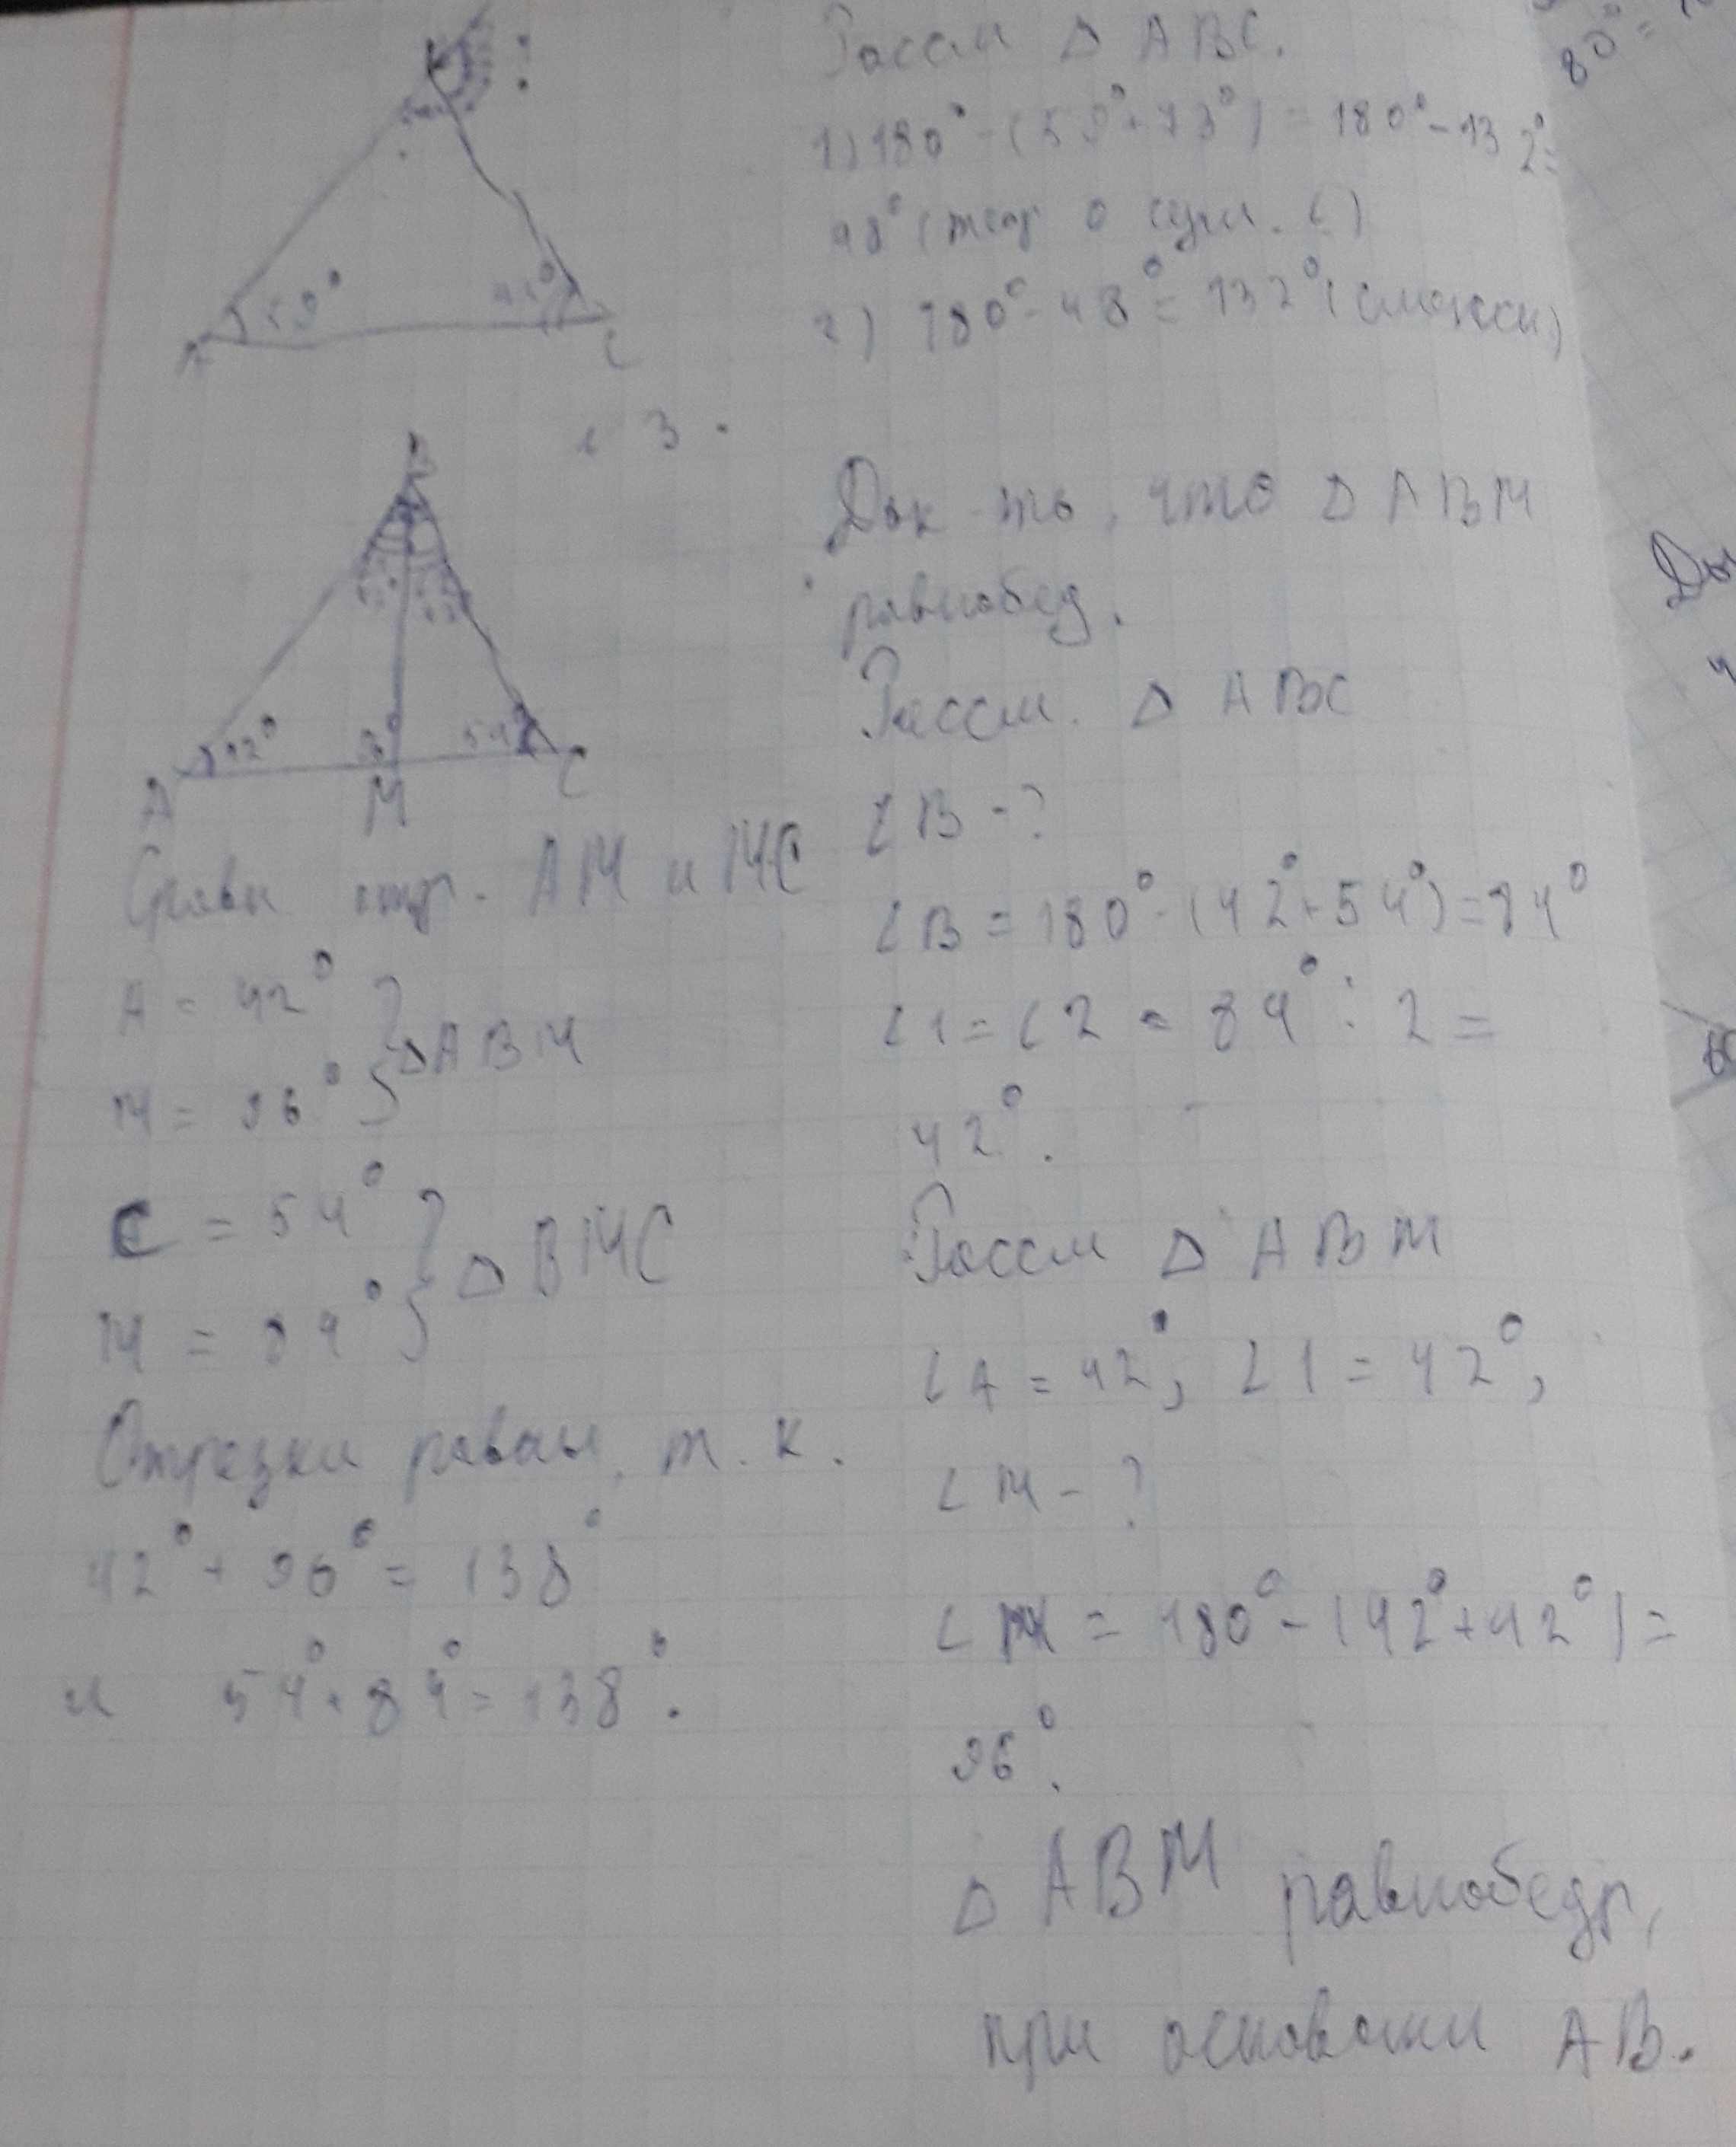 Рассм Δ ABC.
1) 180° - (59° + 73°) = 180° - 132° =
48° (теор о сум. ∠)
2) 180° - 48° = 132° (смежн)
59°
A
C
3.
B
42°
54°
A
M
C
Док-ть, что Δ ABM
равнобед.
Рассм. Δ ABC
∠B - ?
∠B = 180° - (42° + 54°) = 84°
∠1 = ∠2 = 84° : 2 =
42°.
Рассм Δ ABM
∠A = 42°; ∠1 = 42°;
∠M - ?
∠M = 180° - (42° + 42°) =
96°.
Δ ABM равнобедр,
при основани AB.
Сравн отр. AM и MC
A = 42°
M = 96° } Δ ABM
C = 54°
M = 84° } Δ BMC
Отрезки равны, т. к.
42° + 96° = 138°
и 54° + 84° = 138°.
80° =